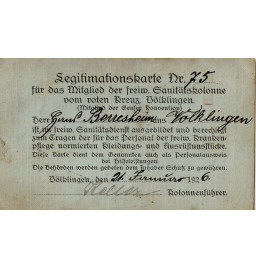 Legitimationskarte Nr. 75
für das Mitglied der freiw. Sanitätskolonne
vom roten Kreuz Völklingen.
(Mitglied der Genfer Konvention)
Herr Berresheim aus Völklingen
ist im freiw. Sanitätsdienst ausgebildet und berechtigt
zum Tragen der für das Personal der freiw. Kranken-
pflege normierten Kleidungs- und Ausrüstungsstücke.
Diese Karte dient dem Genannten auch als Personalausweis
bei Hilfeleistungen.
Die Behörden werden gebeten dem Inhaber Schutz zu gewähren.
Völklingen, den 26. 1926.
Kolonnenführer.